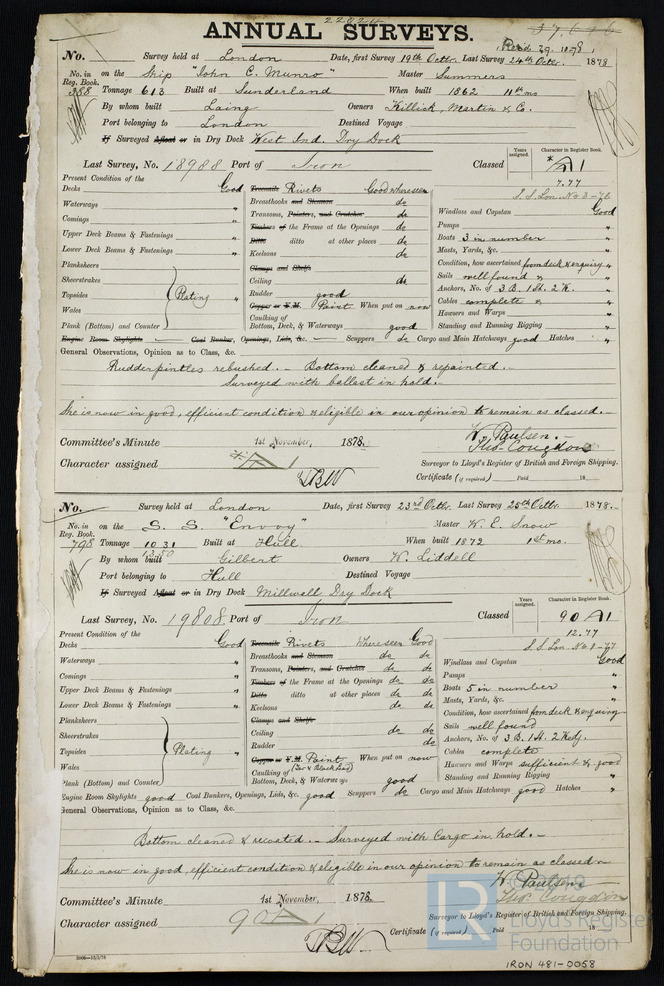 22024
37,626
ANNUAL SURVEYS.
Recd 29. 10. 78
No. Survey held at London Date, first Survey 19th Octbr. Last Survey 24th Octbr. 1878
No. in Reg. Book. 388 on the Ship "John C. Munro" Master Summers
Tonnage 613 Built at Sunderland When built 1862 11th mo
By whom built Laing Owners Killick, Martin & Co.
Port belonging to London Destined Voyage
If Surveyed Afloat or in Dry Dock West Ind. Dry Dock
Last Survey, No. 18988 Port of Iron Classed
Years assigned. Character in Register Book.
* A 1
7.77
S.S. Lon. No 3-76
Present Condition of the
Decks Good Treenails Rivets Good where seen
Waterways " Breasthooks and Stemson do
Comings " Transoms, Pointers, and Crutches do
Timbers of the Frame at the Openings do
Upper Deck Beams & Fastenings " Ditto ditto at other places do
Lower Deck Beams & Fastenings " Keelsons do
Planksheers Clamps and Shelfs
Sheerstrakes Ceiling do
Topsides Plating " Rudder good
Wales Copper or Y.M. Paint When put on now
Plank (Bottom) and Counter Caulking of Bottom, Deck, & Waterways good
Windlass and Capstan Good
Pumps "
Boats 3 in number "
Masts, Yards, &c. "
Condition, how ascertained from deck & enquiry "
Sails well found & "
Anchors, No. of 3 B. 1 St. 2 K. "
Cables complete & "
Hawsers and Warps "
Standing and Running Rigging "
Engine Room Skylights Coal Bunkers, Openings, Lids, &c. Scuppers do Cargo and Main Hatchways good Hatches "
General Observations, Opinion as to Class, &c.
Rudderpintles rebushed. - Bottom cleaned & repainted. -
Surveyed with ballast in hold. -
She is now in good, efficient condition & eligible in our opinion to remain as classed. -
W. Paulsen. -
Thos. Congdon
Committee's Minute 1st November, 1878.
Character assigned * A 1
Surveyor to Lloyd's Register of British and Foreign Shipping.
TBW
Certificate (if required) Paid 18
No. Survey held at London Date, first Survey 23rd Octbr. Last Survey 25th Octbr. 1878.
No. in Reg. Book. 798 on the S. S. "Envoy" Master W. E. Snow
Tonnage 1031 Built at Hull When built 1872 1st mo.
1350
By whom built Gilbert Owners W. Liddell
Port belonging to Hull Destined Voyage
If Surveyed Afloat or in Dry Dock Millwall Dry Dock
Last Survey, No. 19808 Port of Iron Classed
Years assigned. Character in Register Book.
90 A 1
12.77
S.S. Lon No 1-77
Present Condition of the
Decks Good Treenails Rivets Where seen Good
Waterways " Breasthooks and Stemson do do
Comings " Transoms, Pointers, and Crutches do do
Timbers of the Frame at the Openings do do
Upper Deck Beams & Fastenings " Ditto ditto at other places do do
Lower Deck Beams & Fastenings " Keelsons do do
Planksheers Clamps and Shelfs
Sheerstrakes Ceiling do do
Topsides Plating " Rudder do
Wales Copper or Y.M. Paint When put on now
Plank (Bottom) and Counter Caulking of Bottom, Deck, & Waterways good
Windlass and Capstan Good
Pumps "
Boats 5 in number "
Masts, Yards, &c. "
Condition, how ascertained from deck & enquiry
Sails well found "
Anchors, No. of 3 B. 1 St. 2 Kedj. "
Cables complete "
Hawsers and Warps sufficient & good
Standing and Running Rigging "
Engine Room Skylights good Coal Bunkers, Openings, Lids, &c. good Scuppers do Cargo and Main Hatchways good Hatches "
General Observations, Opinion as to Class, &c.
Bottom cleaned & recoated. - Surveyed with Cargo in hold. -
She is now in good, efficient condition & eligible in our opinion to remain as classed -
W. Paulsen
Thos. Congdon
Committee's Minute 1st November, 1878.
Character assigned 90 A 1
Surveyor to Lloyd's Register of British and Foreign Shipping.
TBW
Certificate (if required) Paid 18
LR © 2019
Lloyd's Register Foundation
IRON 481-0058